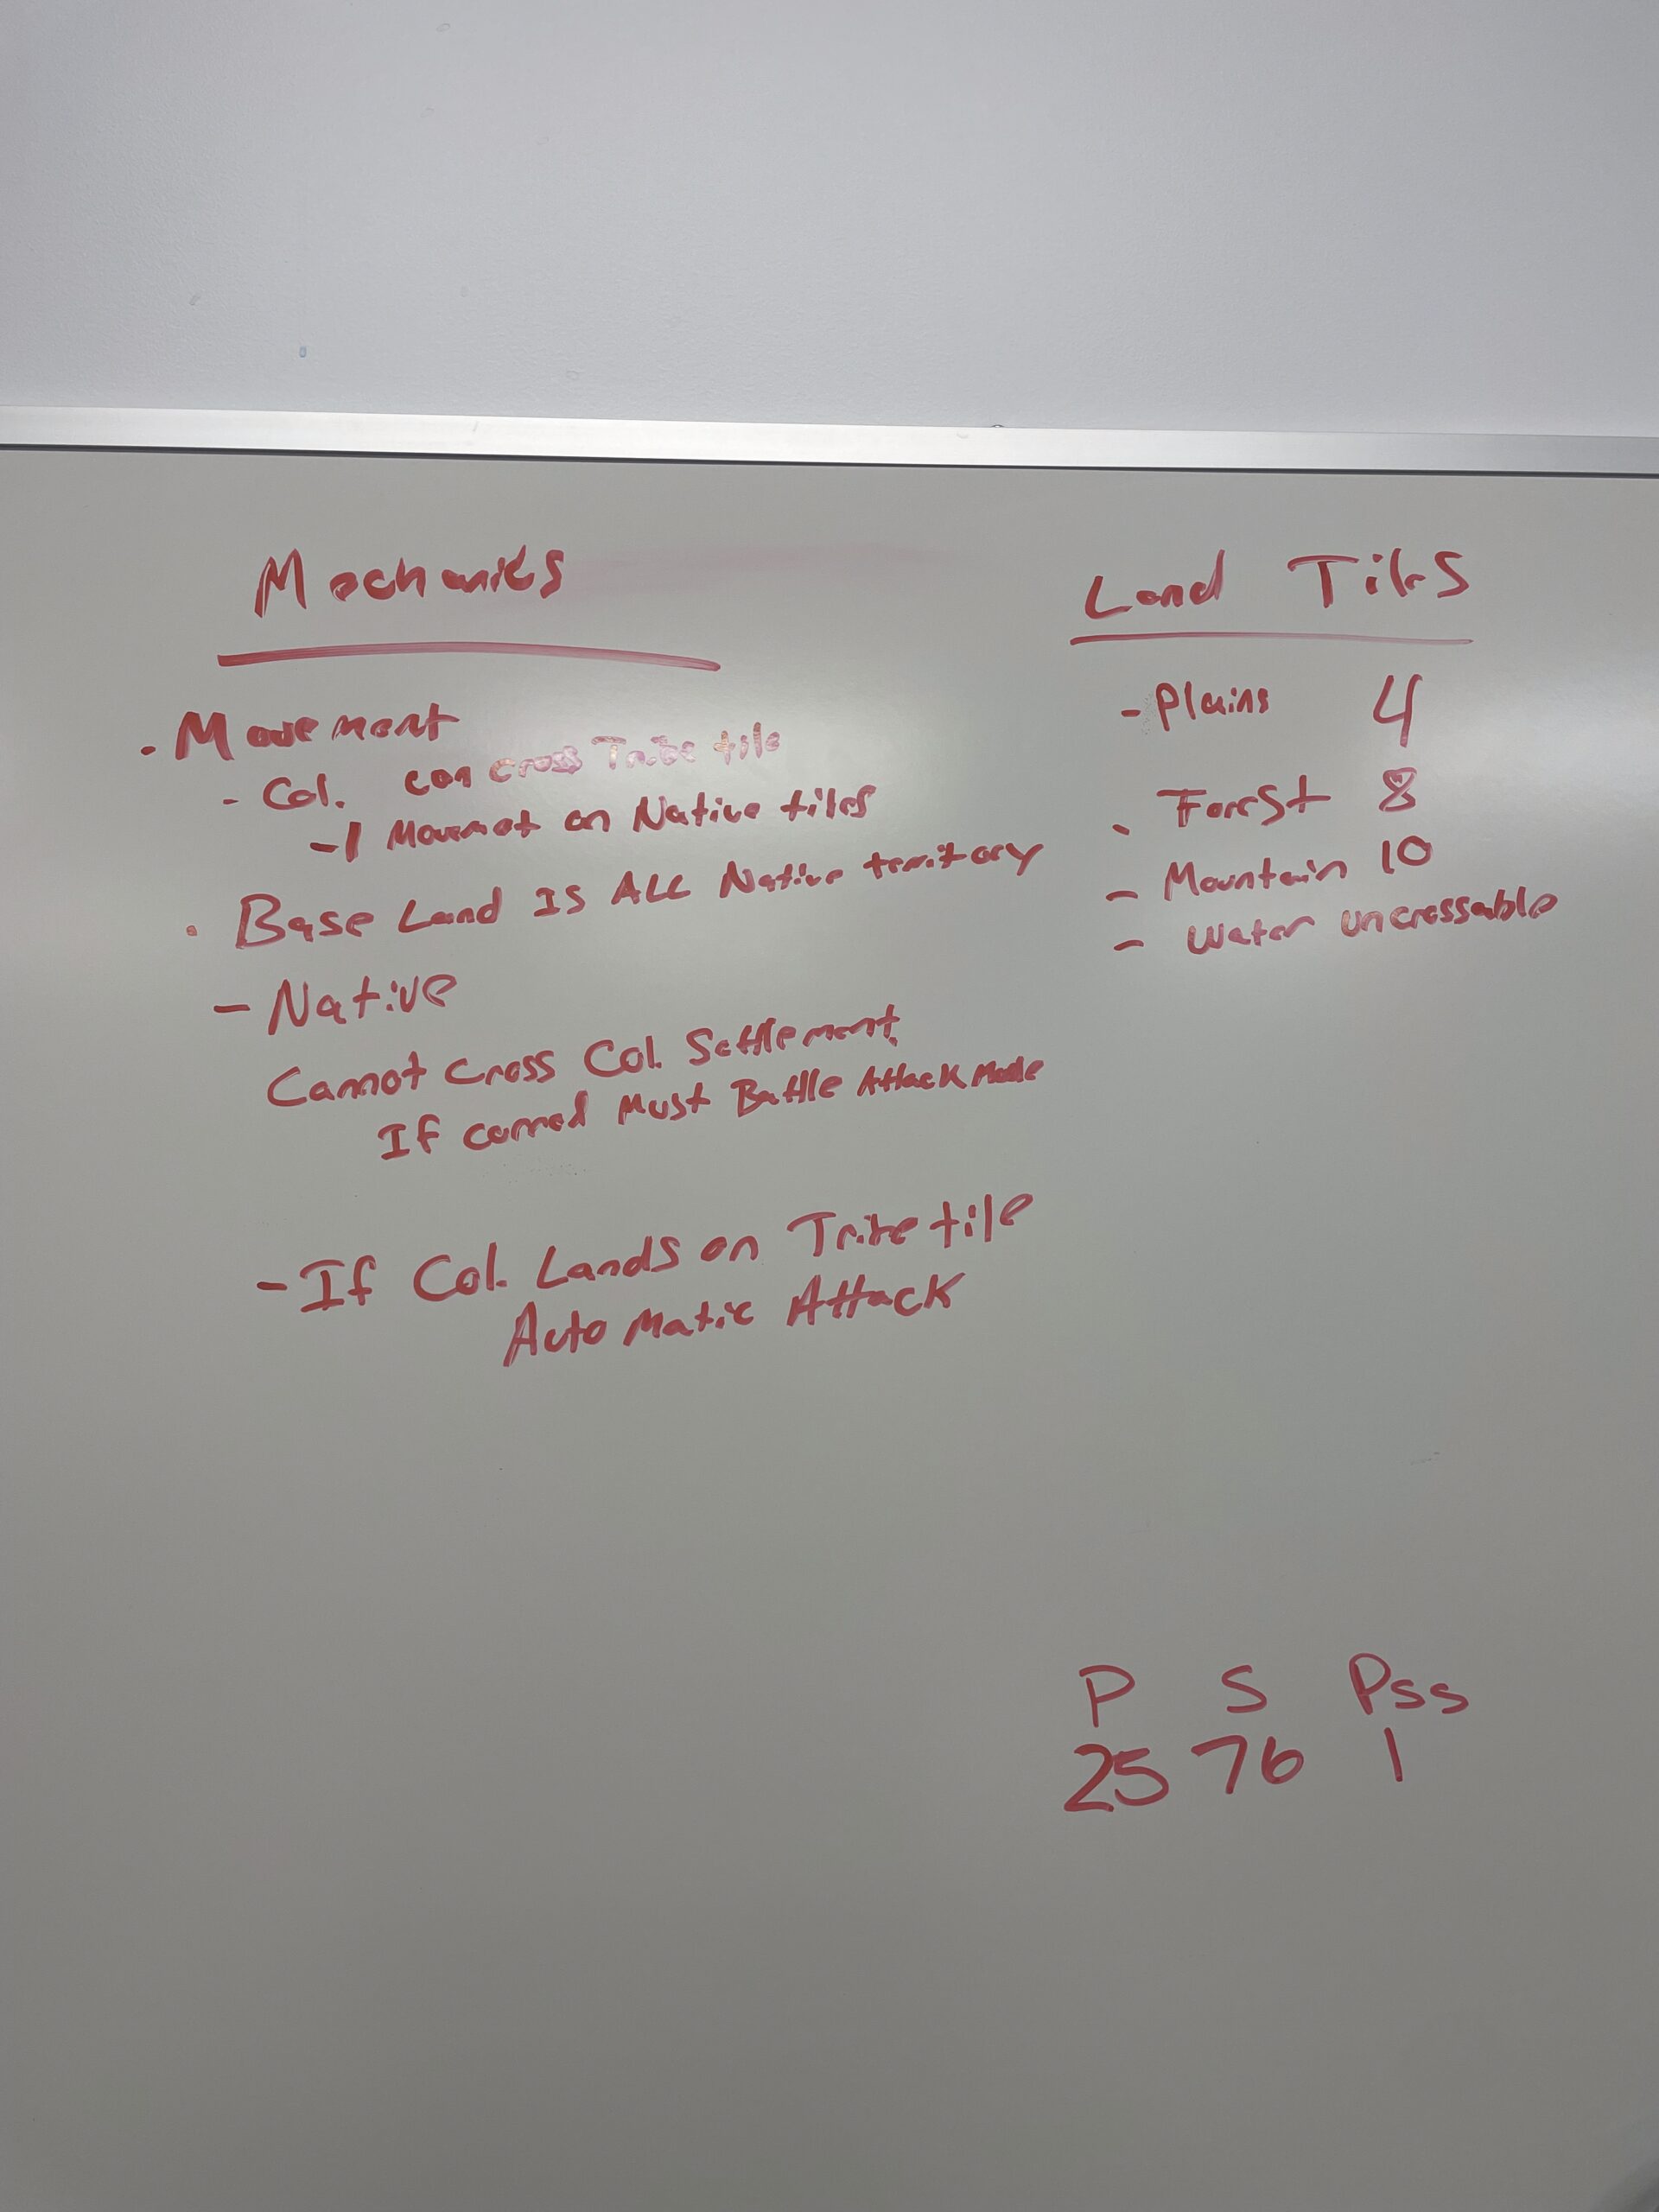 Mechanics
• Movement
- Col. can cross Tribe tile
-1 Movemet on Native tiles
• Base Land Is ALL Native territory
- Native
Cannot cross Col. Settlement.
If corned Must Battle Attack Mode
- If Col. Lands on Tribe tile
Automatic Attack
Land Tiles
- Plains 4
- Forest 8
- Mountain 10
- Water uncrossable
P S Pss
25 76 1